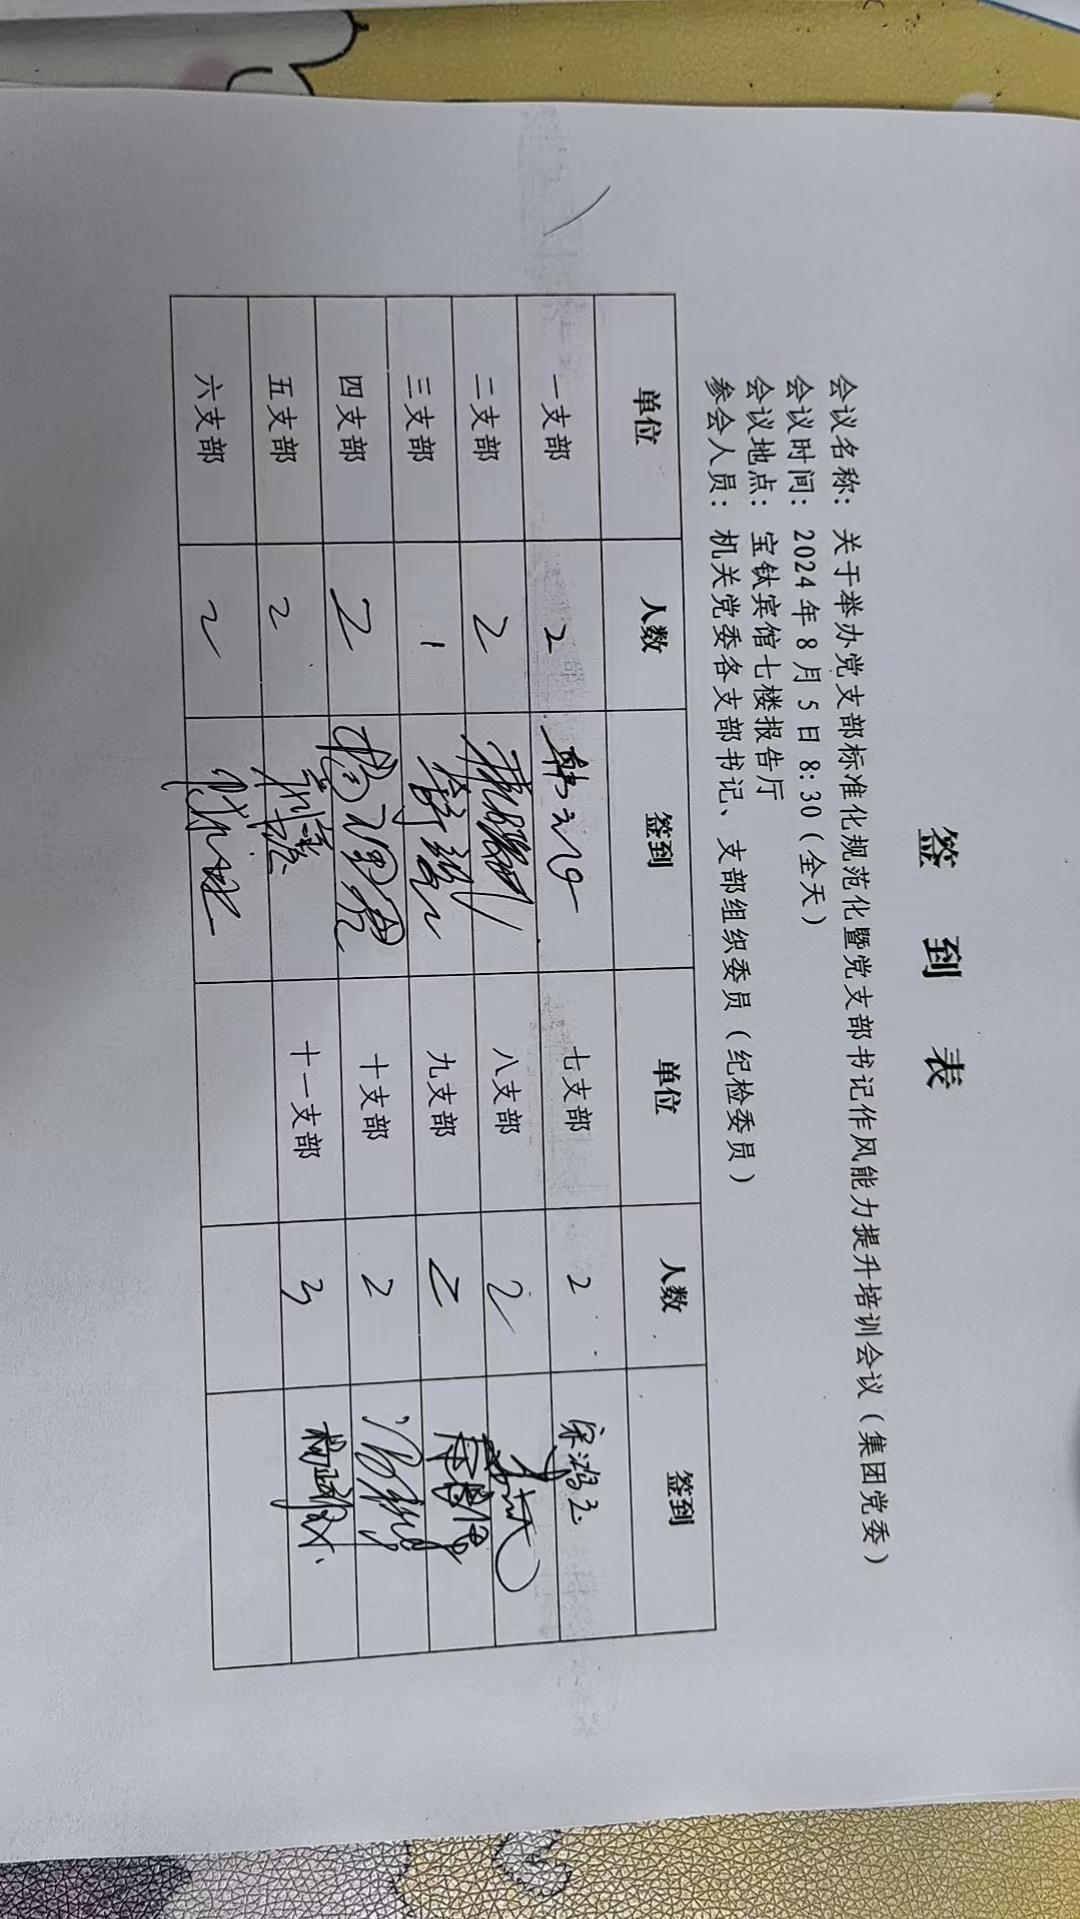 签 到 表
会议名称：关于举办党支部标准化规范化暨党支部书记作风能力提升培训会议（集团党委）
会议时间：2024年8月5日8:30（全天）
会议地点：宝钛宾馆七楼报告厅
参会人员：机关党委各支部书记、支部组织委员（纪检委员）
单位 人数 签到 单位 人数 签到
一支部 2 七支部 2 宋鸿玉
二支部 2 八支部 2
三支部 1 九支部 2
四支部 2 十支部 2
五支部 2 十一支部 3
六支部 2